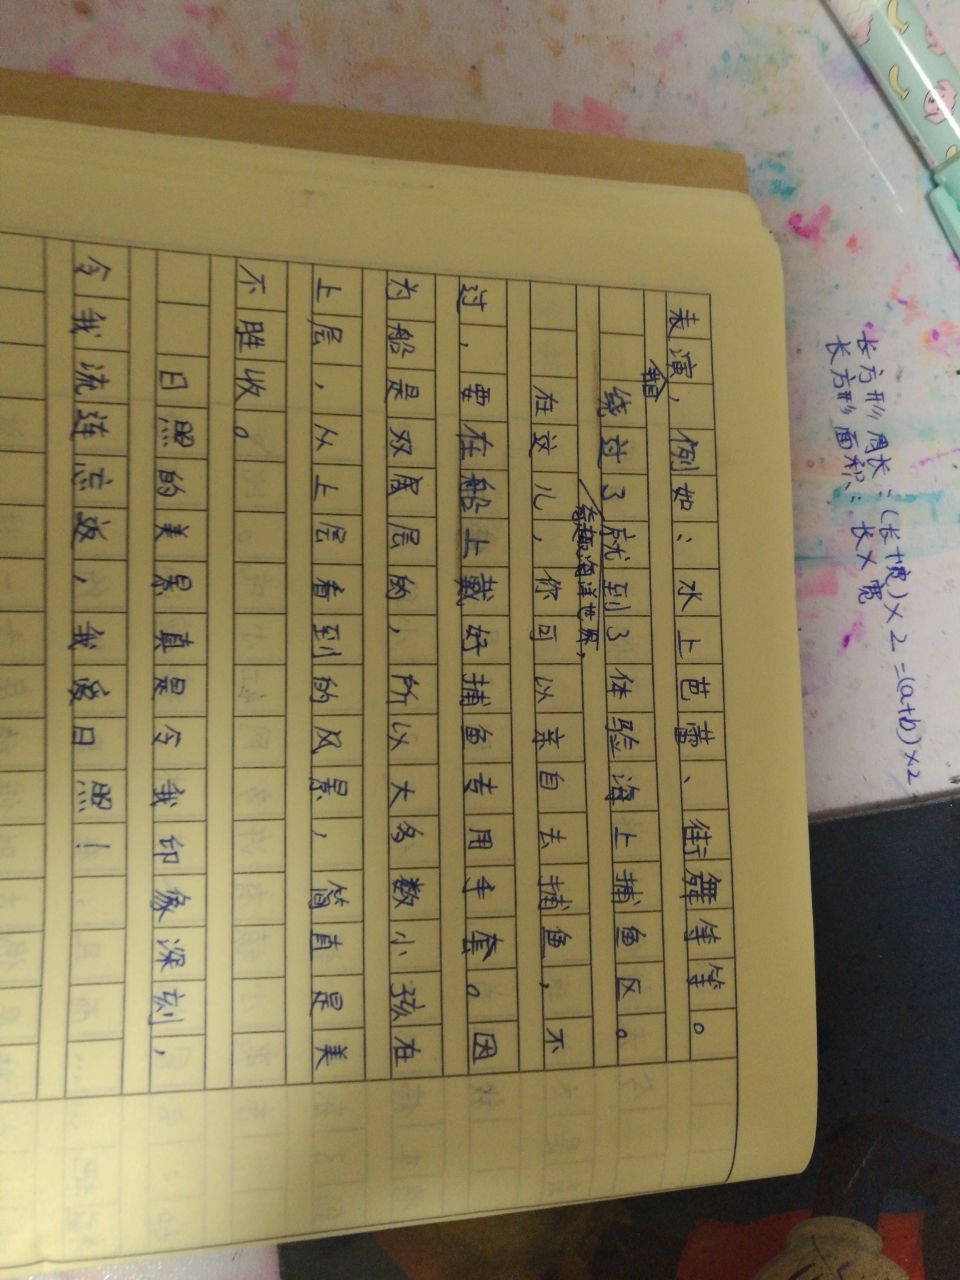 长方形周长：(长+宽)×2=(a+b)×2
长方形面积：长×宽
表演，例如：水上芭蕾、街舞等等。
绕过了就到了体验海上捕鱼区。
海洋世界，
在这儿，你可以亲自去捕鱼，不
过，要在船上戴好捕鱼专用手套。因
为船是双层的，所以大多数小孩在
上层，从上层看到的风景，简直是美
不胜收。
日照的美景真是令我印象深刻，
令我流连忘返，我爱日照！